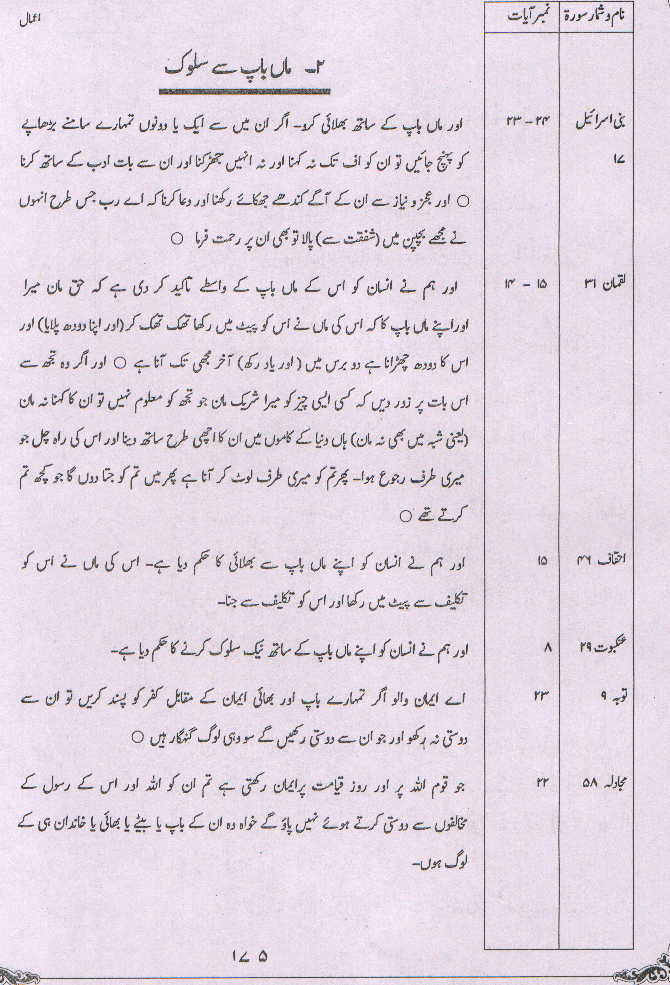 نام و شمار سورۃ نمبر آیات اعمال
۲- ماں باپ سے سلوک
بنی اسرائیل ۲۴ – ۲۳ اور ماں باپ کے ساتھ بھلائی کرو- اگر ان میں سے ایک یا دونوں تمہارے سامنے بڑھاپے
۱۷ کو پہنچ جائیں تو ان کو اف تک نہ کہنا اور نہ انہیں جھڑکنا اور ان سے بات ادب کے ساتھ کرنا
○ اور عجز و نیاز سے ان کے آگے کندھے جھکائے رکھنا اور دعا کرنا کہ اے رب جس طرح انہوں
نے مجھے بچپن میں (شفقت سے) پالا تو بھی ان پر رحمت فرما ○
لقمان ۳۱ ۱۵ – ۱۴ اور ہم نے انسان کو اس کے ماں باپ کے واسطے تاکید کر دی ہے کہ حق مان میرا
اور اپنے ماں باپ کا کہ اس کی ماں نے اس کو پیٹ میں رکھا تھک تھک کر (اور اپنا دودھ پلایا) اور
اس کا دودھ چھڑانا ہے دو برس میں (اور یاد رکھ) آخر مجھی تک آنا ہے ○ اور اگر وہ تجھ سے
اس بات پر زور دیں کہ کسی ایسی چیز کو میرا شریک مان جو تجھ کو معلوم نہیں تو ان کا کہنا نہ مان
(یعنی شبہ میں بھی نہ مان) ہاں دنیا کے کاموں میں ان کا اچھی طرح ساتھ دینا اور اس کی راہ چل جو
میری طرف رجوع ہوا- پھر تم کو میری طرف لوٹ کر آنا ہے پھر میں تم کو جتا دوں گا جو کچھ تم
کرتے تھے ○
احقاف ۴۶ ۱۵ اور ہم نے انسان کو اپنے ماں باپ سے بھلائی کا حکم دیا ہے- اس کی ماں نے اس کو
تکلیف سے پیٹ میں رکھا اور اس کو تکلیف سے جنا-
عنکبوت ۲۹ ۸ اور ہم نے انسان کو اپنے ماں باپ کے ساتھ نیک سلوک کرنے کا حکم دیا ہے-
توبہ ۹ ۲۳ اے ایمان والو اگر تمہارے باپ اور بھائی ایمان کے مقابل کفر کو پسند کریں تو ان سے
دوستی نہ رکھو اور جو ان سے دوستی رکھیں گے سو وہی لوگ گنہگار ہیں ○
مجادلہ ۵۸ ۲۲ جو قوم اللہ پر اور روز قیامت پر ایمان رکھتی ہے تم ان کو اللہ اور اس کے رسول کے
مخالفوں سے دوستی کرتے ہوئے نہیں پاؤ گے خواہ وہ ان کے باپ یا بیٹے یا بھائی یا خاندان ہی کے
لوگ ہوں-
۱۷۵